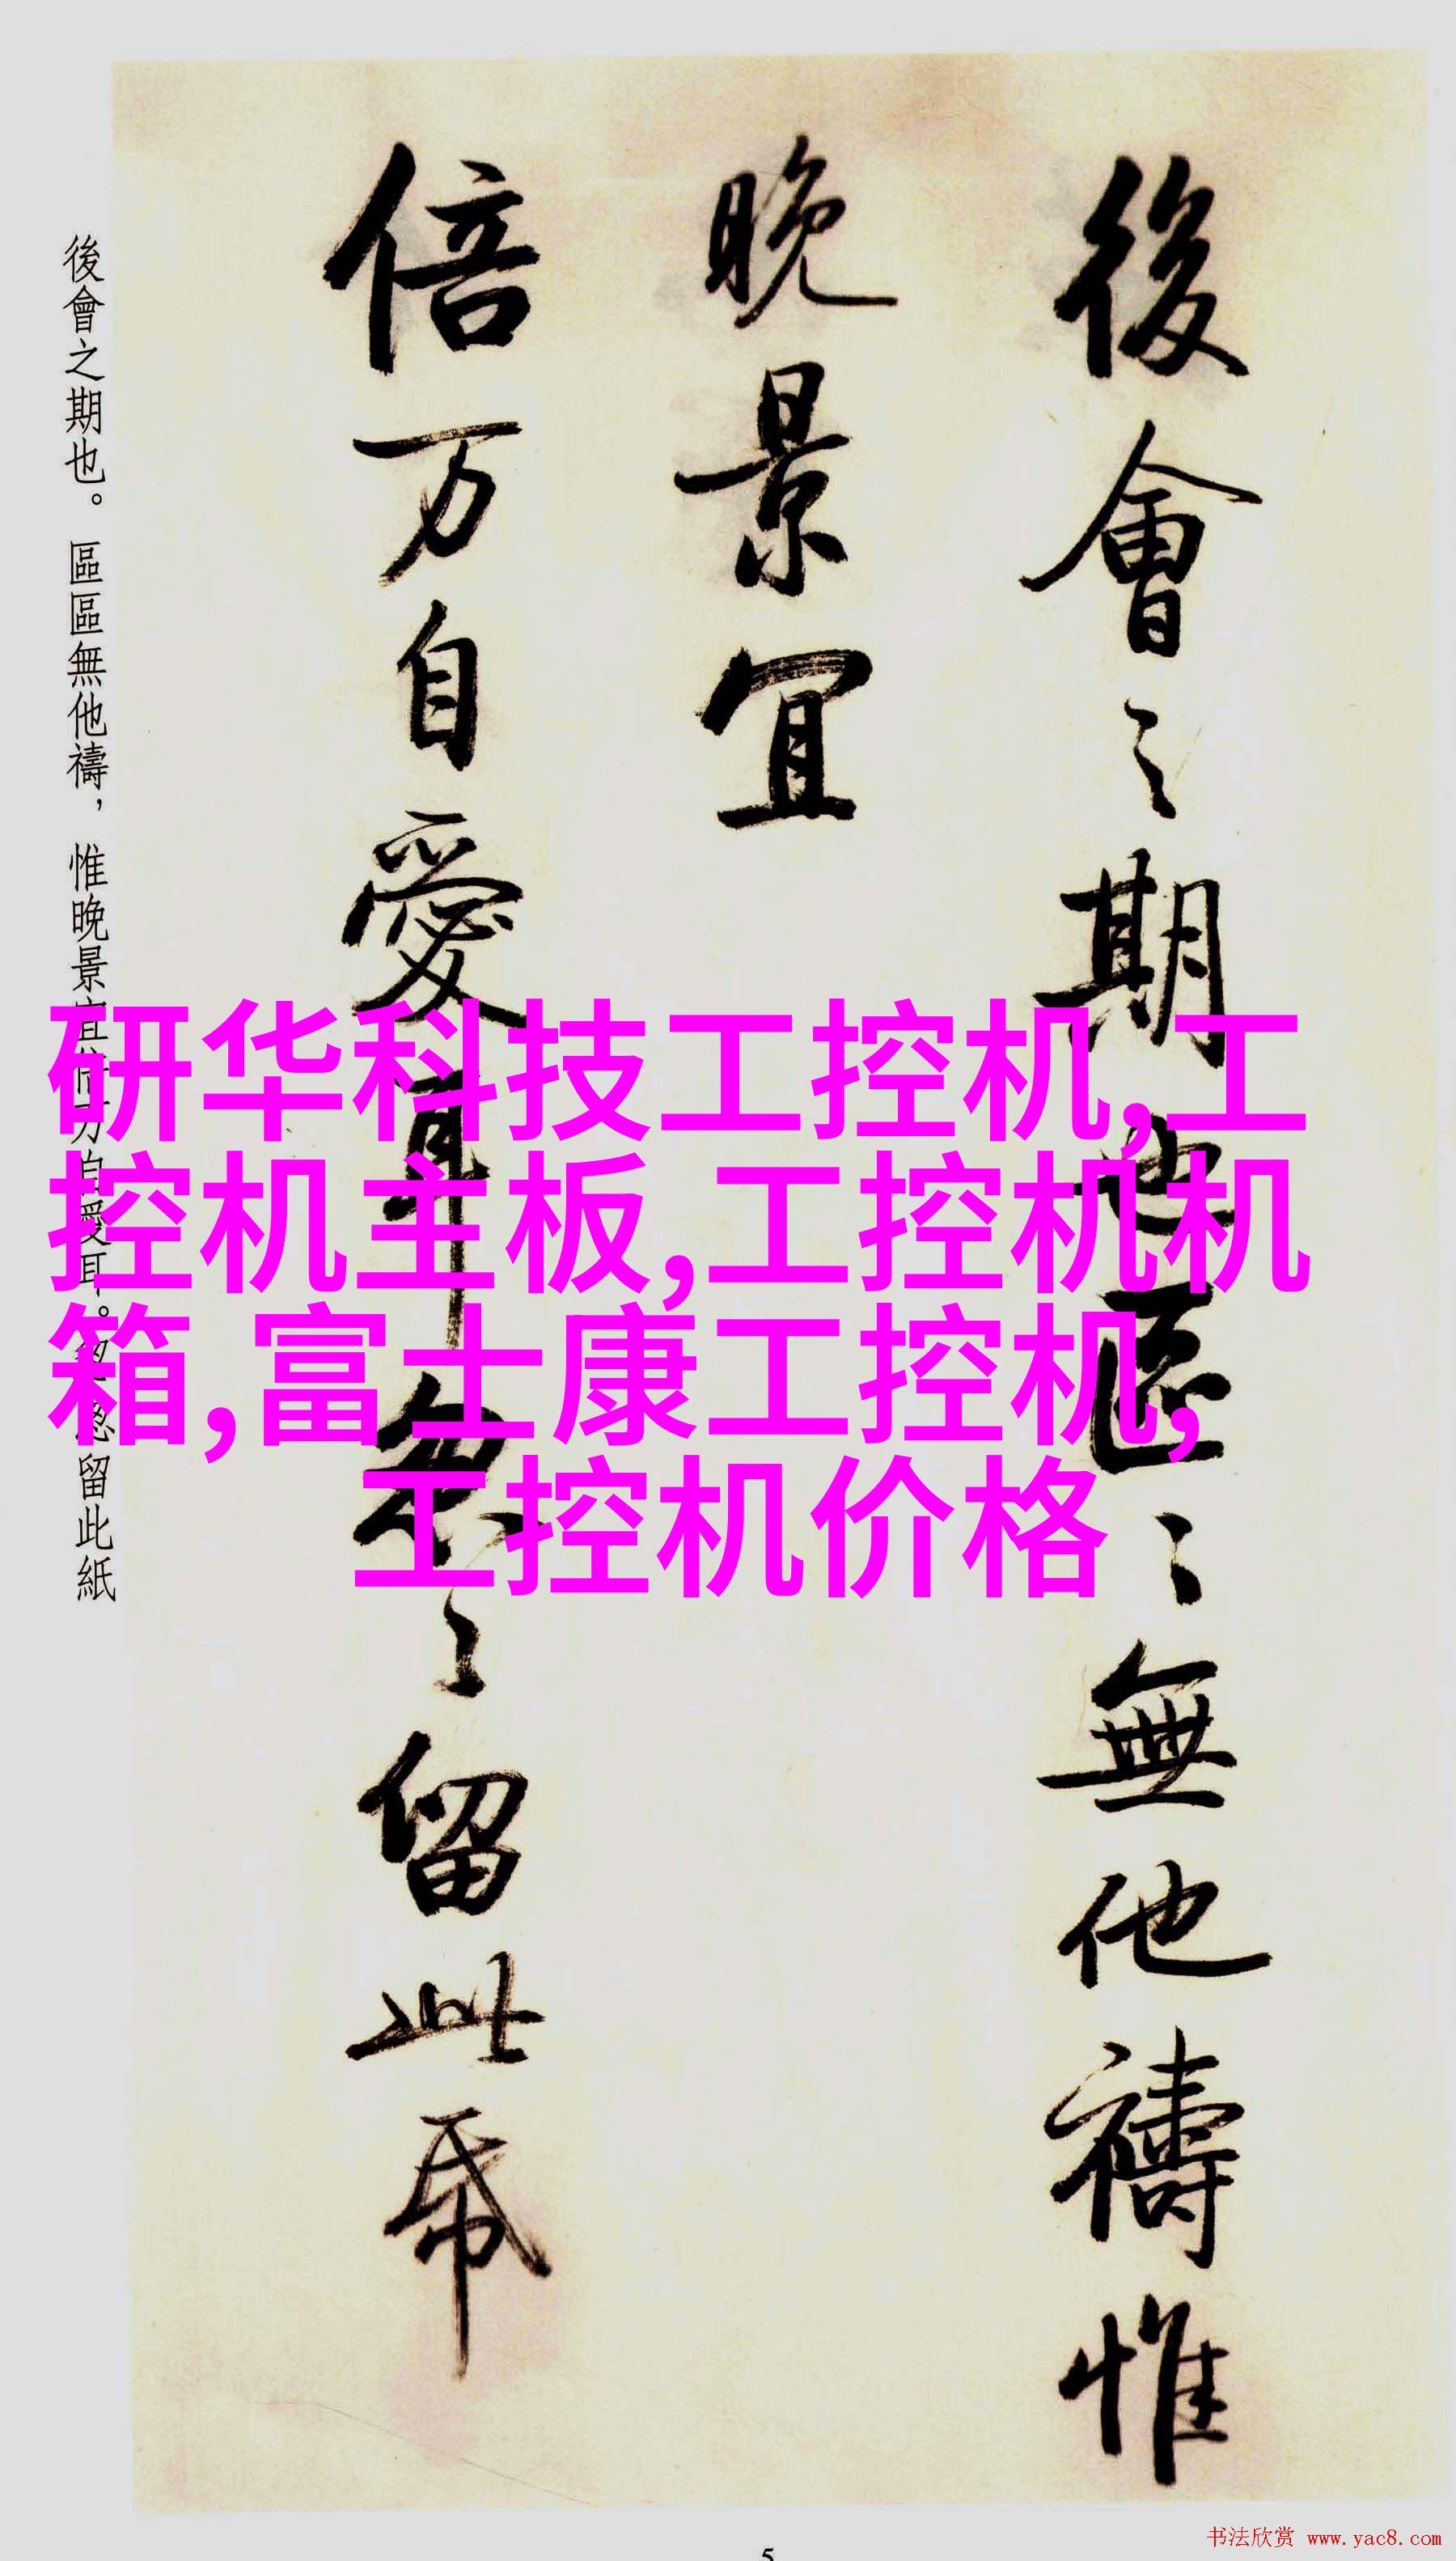 後會之期也區〻無他禱惟
晚景宜
倍万自愛耳匆〻留此帋
後會之期也。區區無他禱，惟晚景宜倍万自愛耳。匆匆留此紙
研华科技工控机,工
控机主板,工控机机
箱,富士康工控机,
工控机价格
书法欣赏 www.yac8.com
5